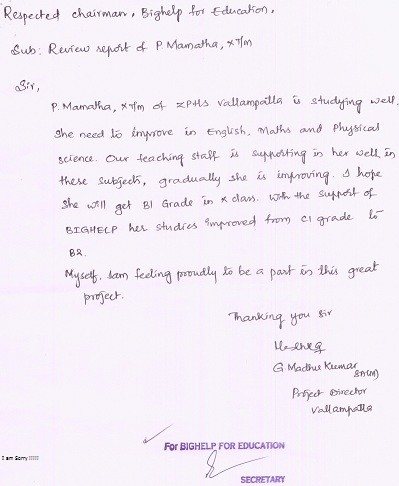 Respected chairman, Bighelp for Education,
Sub: Review report of P. Mamatha, X T/m
Sir,
P. Mamatha, X T/m of ZPHS Vallampatla is studying well.
She need to improve in English, Maths and Physical
science. Our teaching staff is supporting in her well in
these subjects, gradually she is improving. I hope
She will get B1 Grade in X class. With the support of
BIGHELP her studies improved from C1 grade to
B2.
Myself, Iam feeling proudly to be a part in this great
project.
Thanking you Sir
G. Madhu Kumar
Project Director
Vallampatla
For BIGHELP FOR EDUCATION
SECRETARY